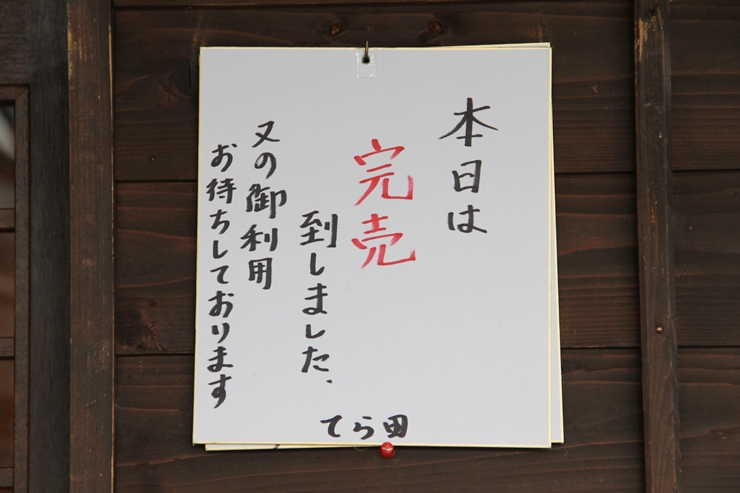 本日は
完売
到しました、
又の御利用
お待ちしております
てら田